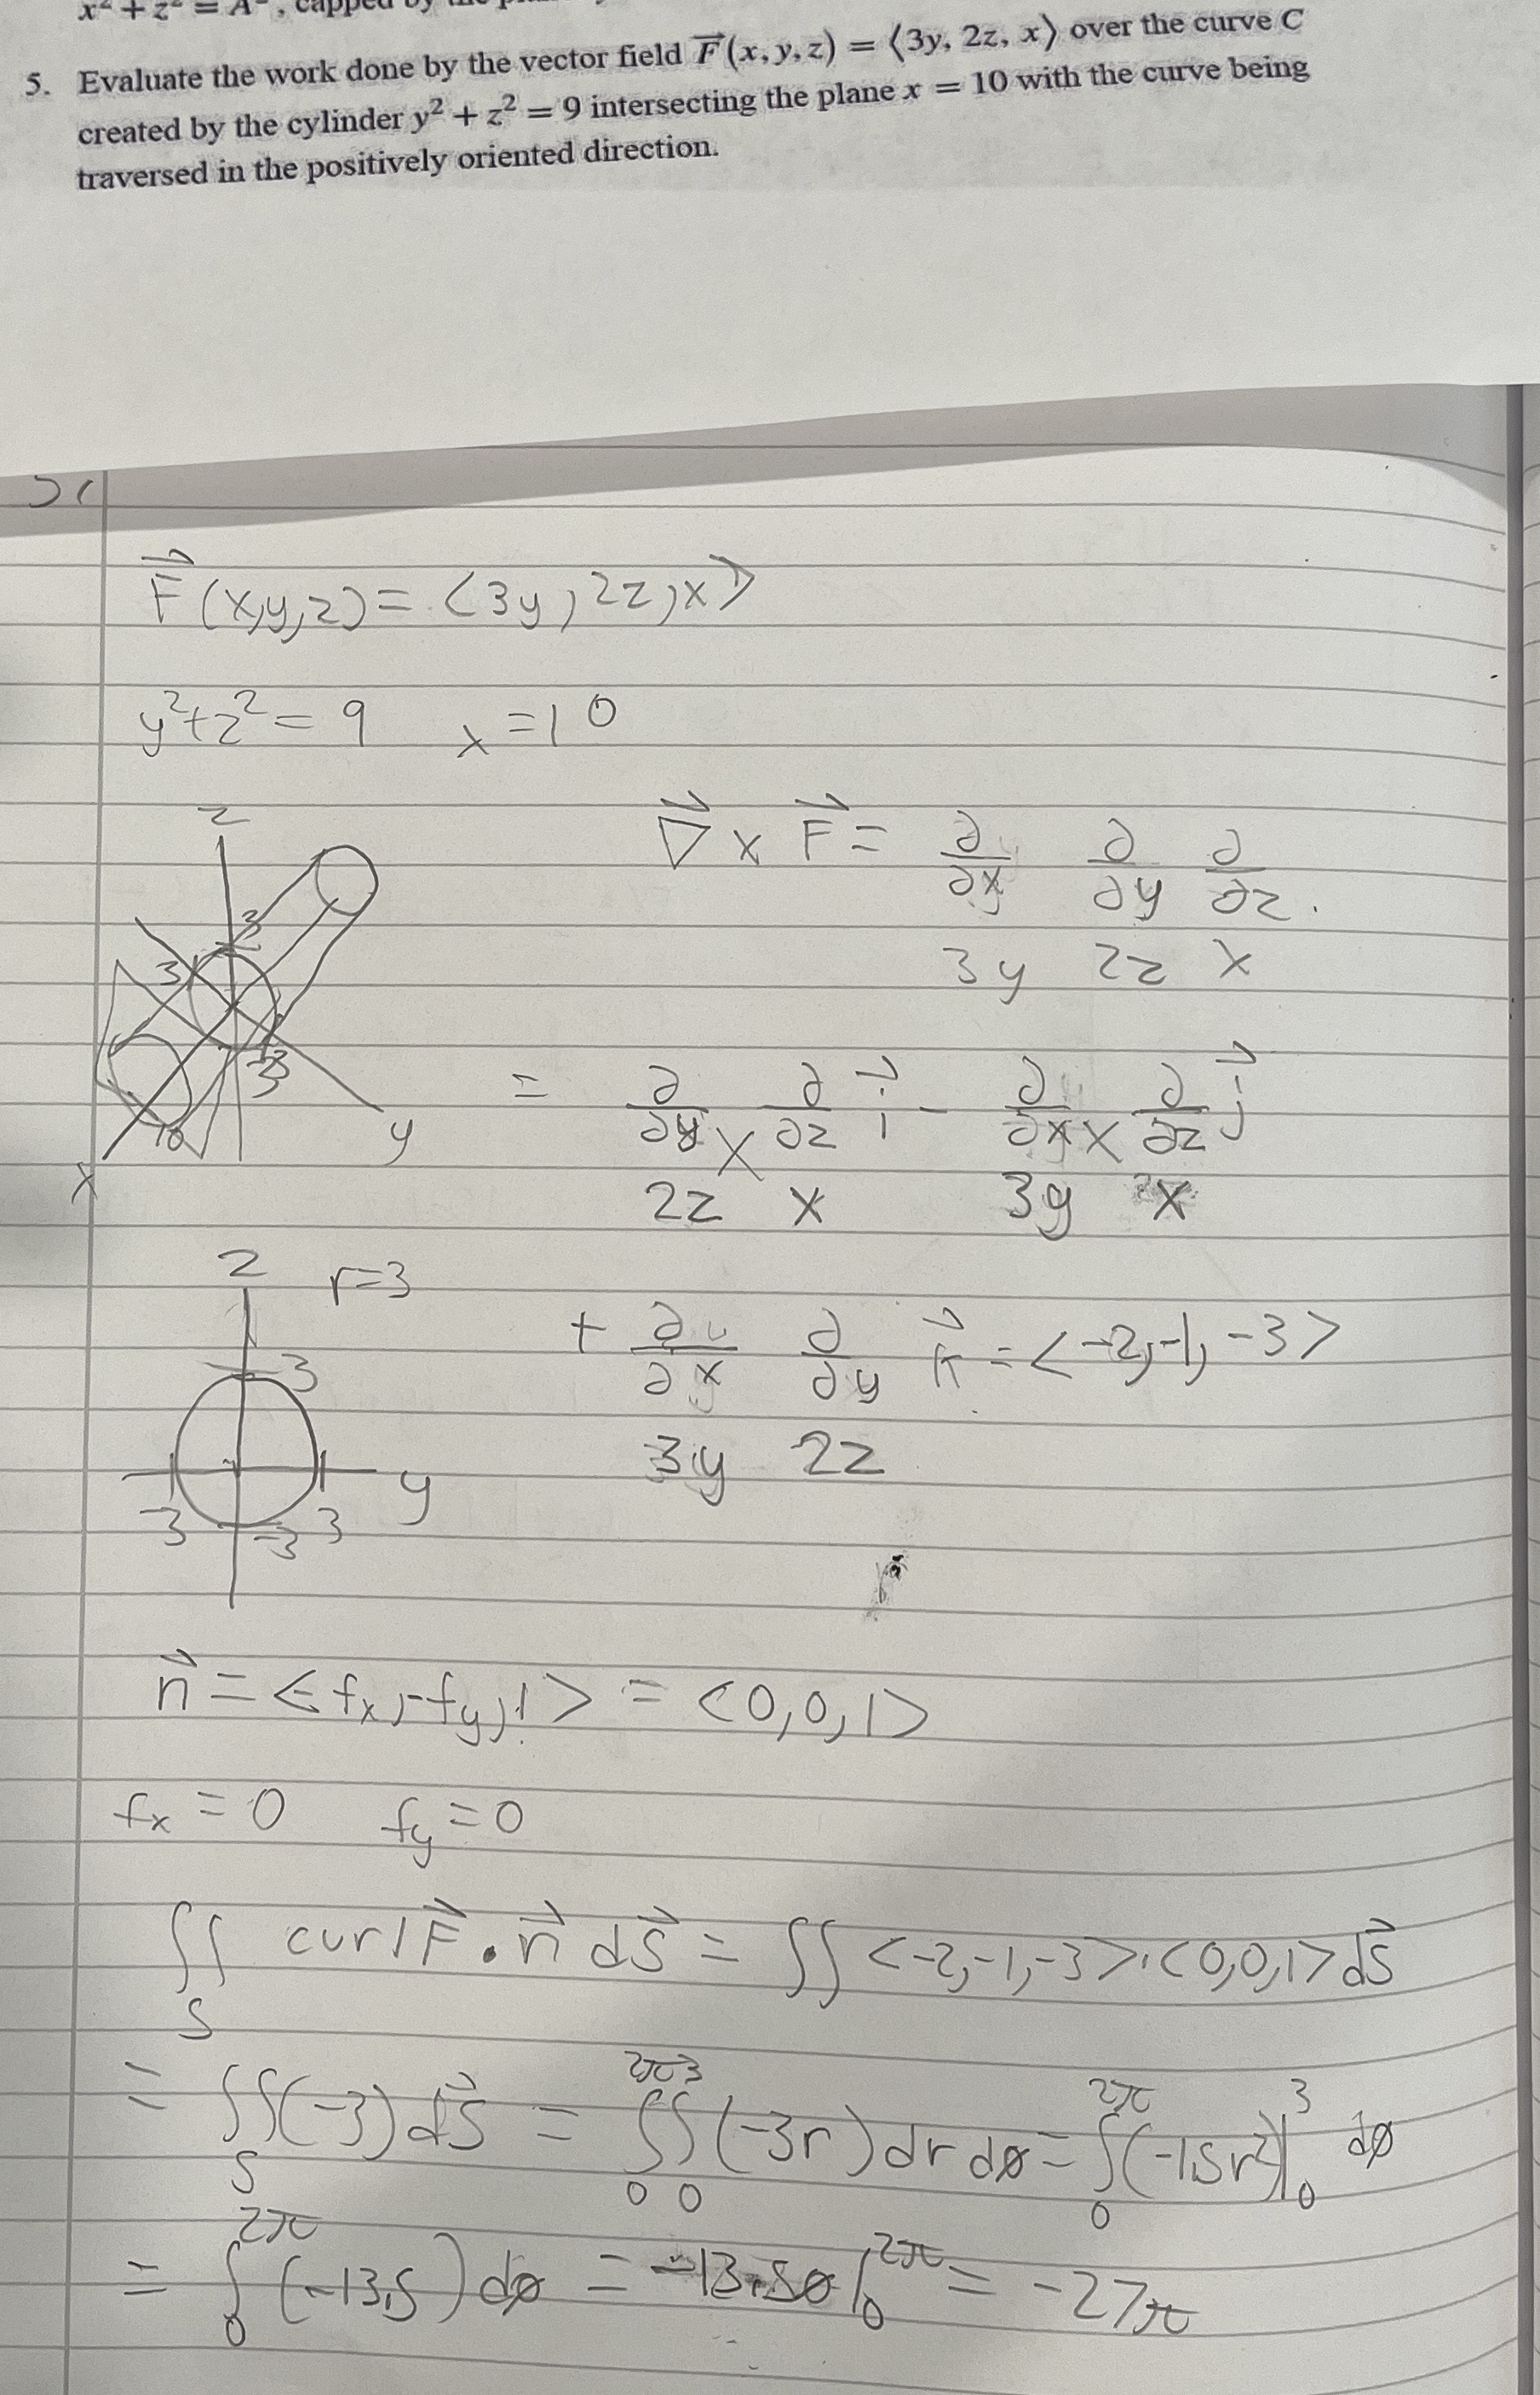 x² + z² = A², capped by the
5. Evaluate the work done by the vector field F⃗(x, y, z) = ⟨3y, 2z, x⟩ over the curve C
created by the cylinder y² + z² = 9 intersecting the plane x = 10 with the curve being
traversed in the positively oriented direction.
F⃗(x,y,z) = <3y, 2z, x>
y²+z² = 9 x = 10
z
∇⃗ x F⃗ = ∂/∂x ∂/∂y ∂/∂z
3y 2z x
3
3
3
10
y
x
= ∂/∂y x ∂/∂z i⃗ - ∂/∂x x ∂/∂z j⃗
2z x 3y x
z r=3
+ ∂/∂x ∂/∂y k⃗ = <-2, -1, -3>
3y 2z
3
y
-3 -3 3
n⃗ = <-fx, -fy, 1> = <0, 0, 1>
fx = 0 fy = 0
∬S curl F⃗ • n⃗ dS⃗ = ∬ <-2, -1, -3> · <0, 0, 1> dS⃗
= ∬S (-3) dS⃗ = ∫0^2π ∫0^3 (-3r) dr dø = ∫0^2π (-1.5r²)|0^3 dø
= ∫0^2π (-13.5) dø = -13.5ø |0^2π = -27π